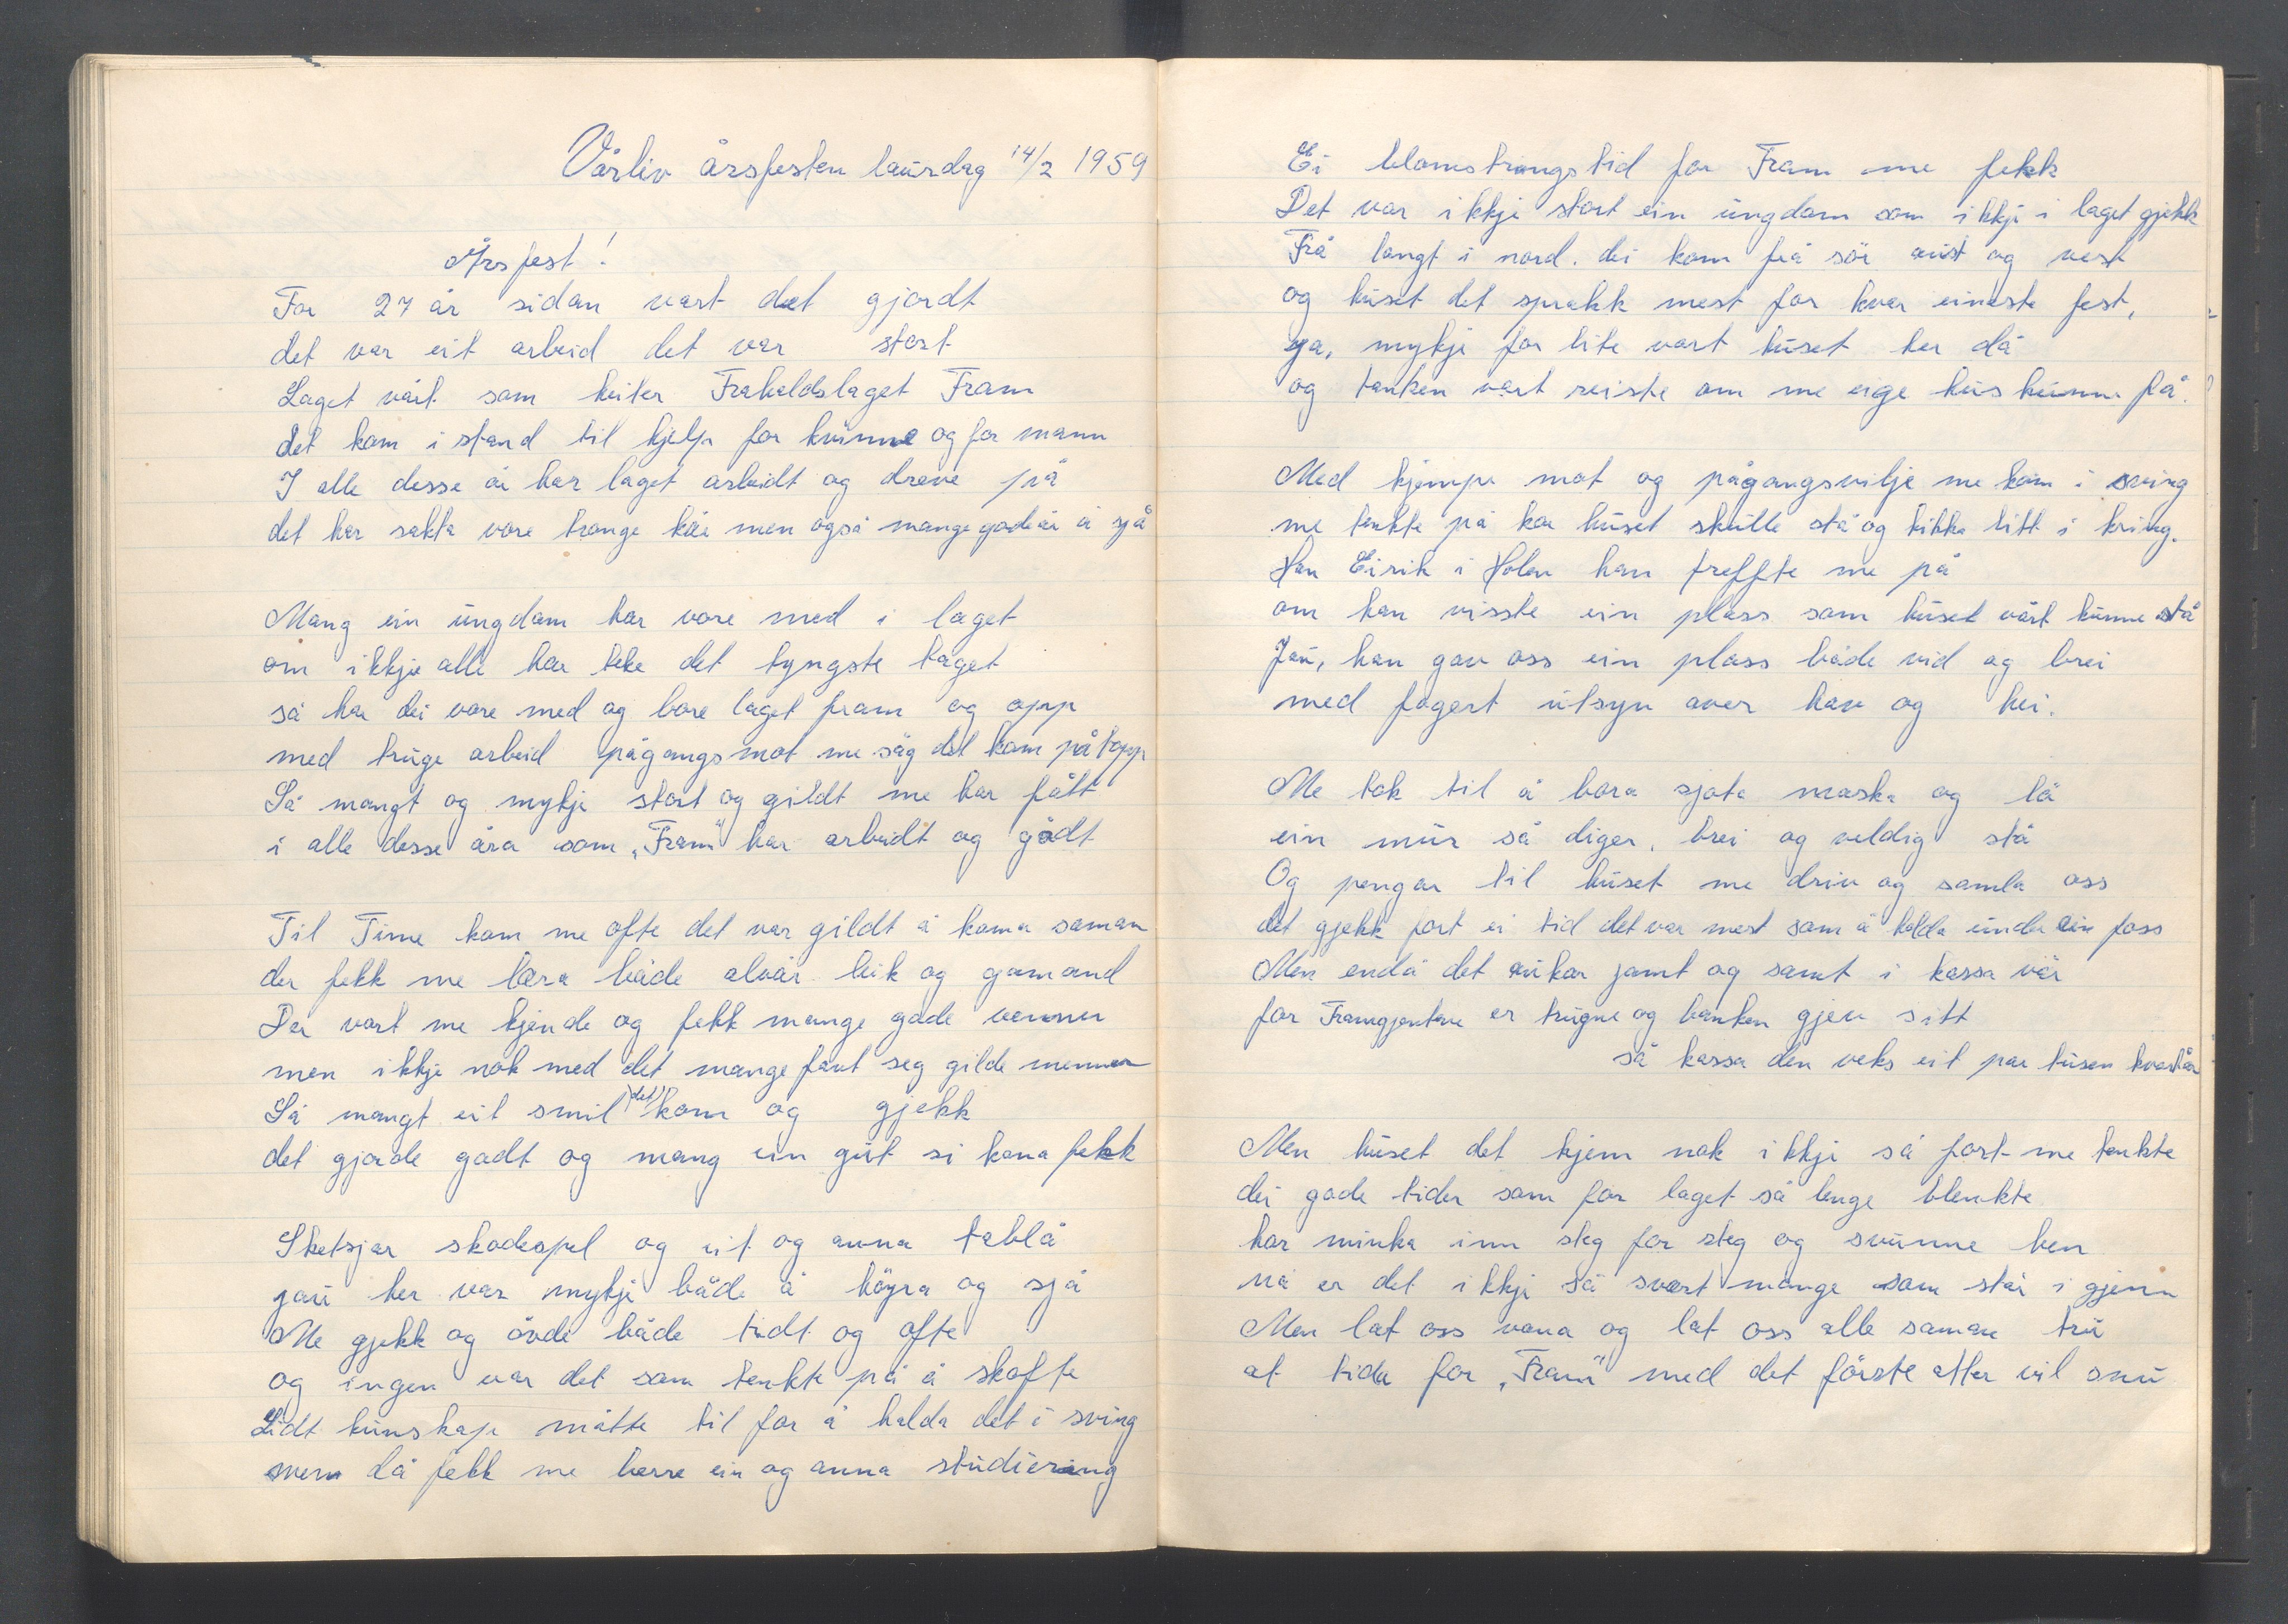 Vårliv årsfesten laurdag 14/2 1959
Årsfest!
For 27 år sidan vart det gjordt
det var eit arbeid det var stort
Laget vårt som heiter Fraholdslaget Fram
det kom i stand til hjelp for kvinne og for mann
I alle desse år har laget arbeidt og dreve på
det har sakta vore trange kår men også mange gode år å sjå
Mang ein ungdom har vore med i laget
om ikkje alle har teke det tyngste taget
så har dei vore med og bore laget fram og opp
med truge arbeid pågangsmot me såg det kom på topp
Så mangt og mykje stort og gildt me har fått
i alle desse åra som „Fram" har arbeidt og gådt
Til Time kom me ofte det var gildt å koma saman
der fekk me læra både alvår leik og gamand
Der vart me kjende og fekk mange gode venner
men ikkje nok med det mange fant seg gilde menner
Så mangt eit smil det kom og gjekk
det gjorde godt og mang ein gut si kona fekk
Sketsjar skodespel og eit og anna tablå
jau her var mykje både å høyra og sjå
Me gjekk og övde både tidt og ofte
og ingen var det som tenkte på å skofte
Lidt kunskap måtte til for å halda det i sving
men då fekk me berre ein og anna studiering
Ei blomstringstid for Fram me fekk
Det var ikkje stort ein ungdom som ikkje i laget gjekk
Frå langt i nord. dei kom frå sör aust og vest
og huset det sprakk mest for kvar eineste fest,
ja, mykje for lite vart huset her då
og tanken vart reiste om me eige hus kunne få.
Med kjempe mot og pågangsvilje me kom i sving
me tenkte på kor huset skulle stå og kikka litt i kring.
Han Eirik i Holen han treffte me på
om han visste ein plass som huset vårt kunne stå
Jau, han gav oss ein plass både vid og brei
med fagert utsyn over hav og hei.
Me tok til å bora sjota maska og lö
ein mur så diger, brei og veldig stå
Og pengar til huset me driv og samla oss
det gjekk fort ei tid det var mest som å halda under ein foss
Men endå det aukar jamt og samt i kassa vår
for Framgjentene er trugne og banken gjev sitt
så kassa den veks eit par tusen kvart år
Men huset det kjem nok ikkje så fort me tenkte
dei gode tider som for laget så lenge blenkte
har minka inn steg for steg og svunne hen
nå er det ikkje så svært mange som står i gjenn
Men lat oss vona og lat oss alle saman tru
at tida for „Fram" med det förste atter vil snu